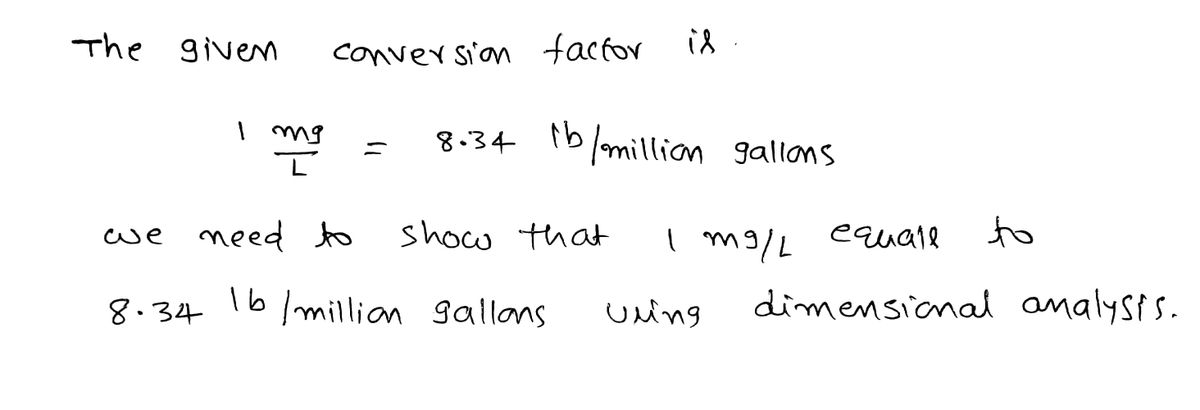 The given conversion factor is.
1 mg/L = 8.34 lb/million gallons
we need to show that 1 mg/L equals to
8.34 lb/million gallons using dimensional analysis.